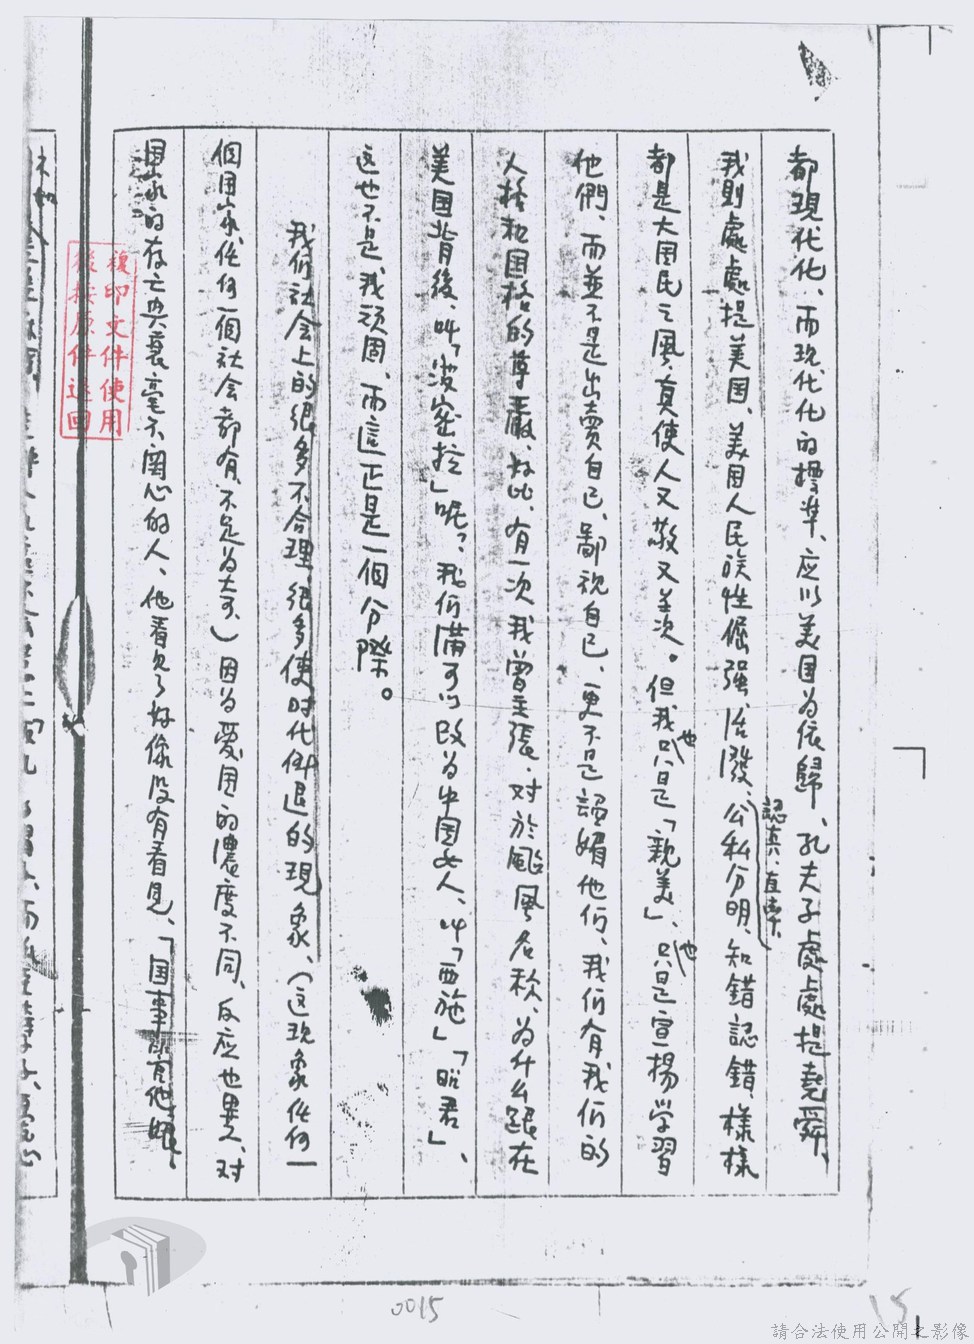 都現代化、而現代化的標準、应以美国为依歸、孔夫子處處提堯舜、
我則處處提美国、美国人民族性倔强、活潑、認真、直率、公私分明、知錯認錯、樣樣
都是大国民之風、真使人又敬又羡。但我也只是「親美」、也只是宣揚学習
他們、而並不是出賣自己、鄙視自己、更不是諂媚他们、我们有我们的
人格和国格的尊嚴、好比、有一次我曾主張、对於颱風名称、为什么跟在
美国背後、叫「波密拉」呢?、我们满可以改为中国女人、叫「西施」「昭君」、
这也不是我頑固、而這正是一個分際。
我们社会上的很多不合理、很多使时代倒退的現象、(这現象任何一
個国家任何一個社会都有、不足为奇、)因为愛国的濃度不同、反应也異、对
国家的存亡興衰毫不関心的人、他看見了好像没有看見、「国事管他娘」、
複印文件使用
後按原件退回
0015
15
請合法使用公開之影像